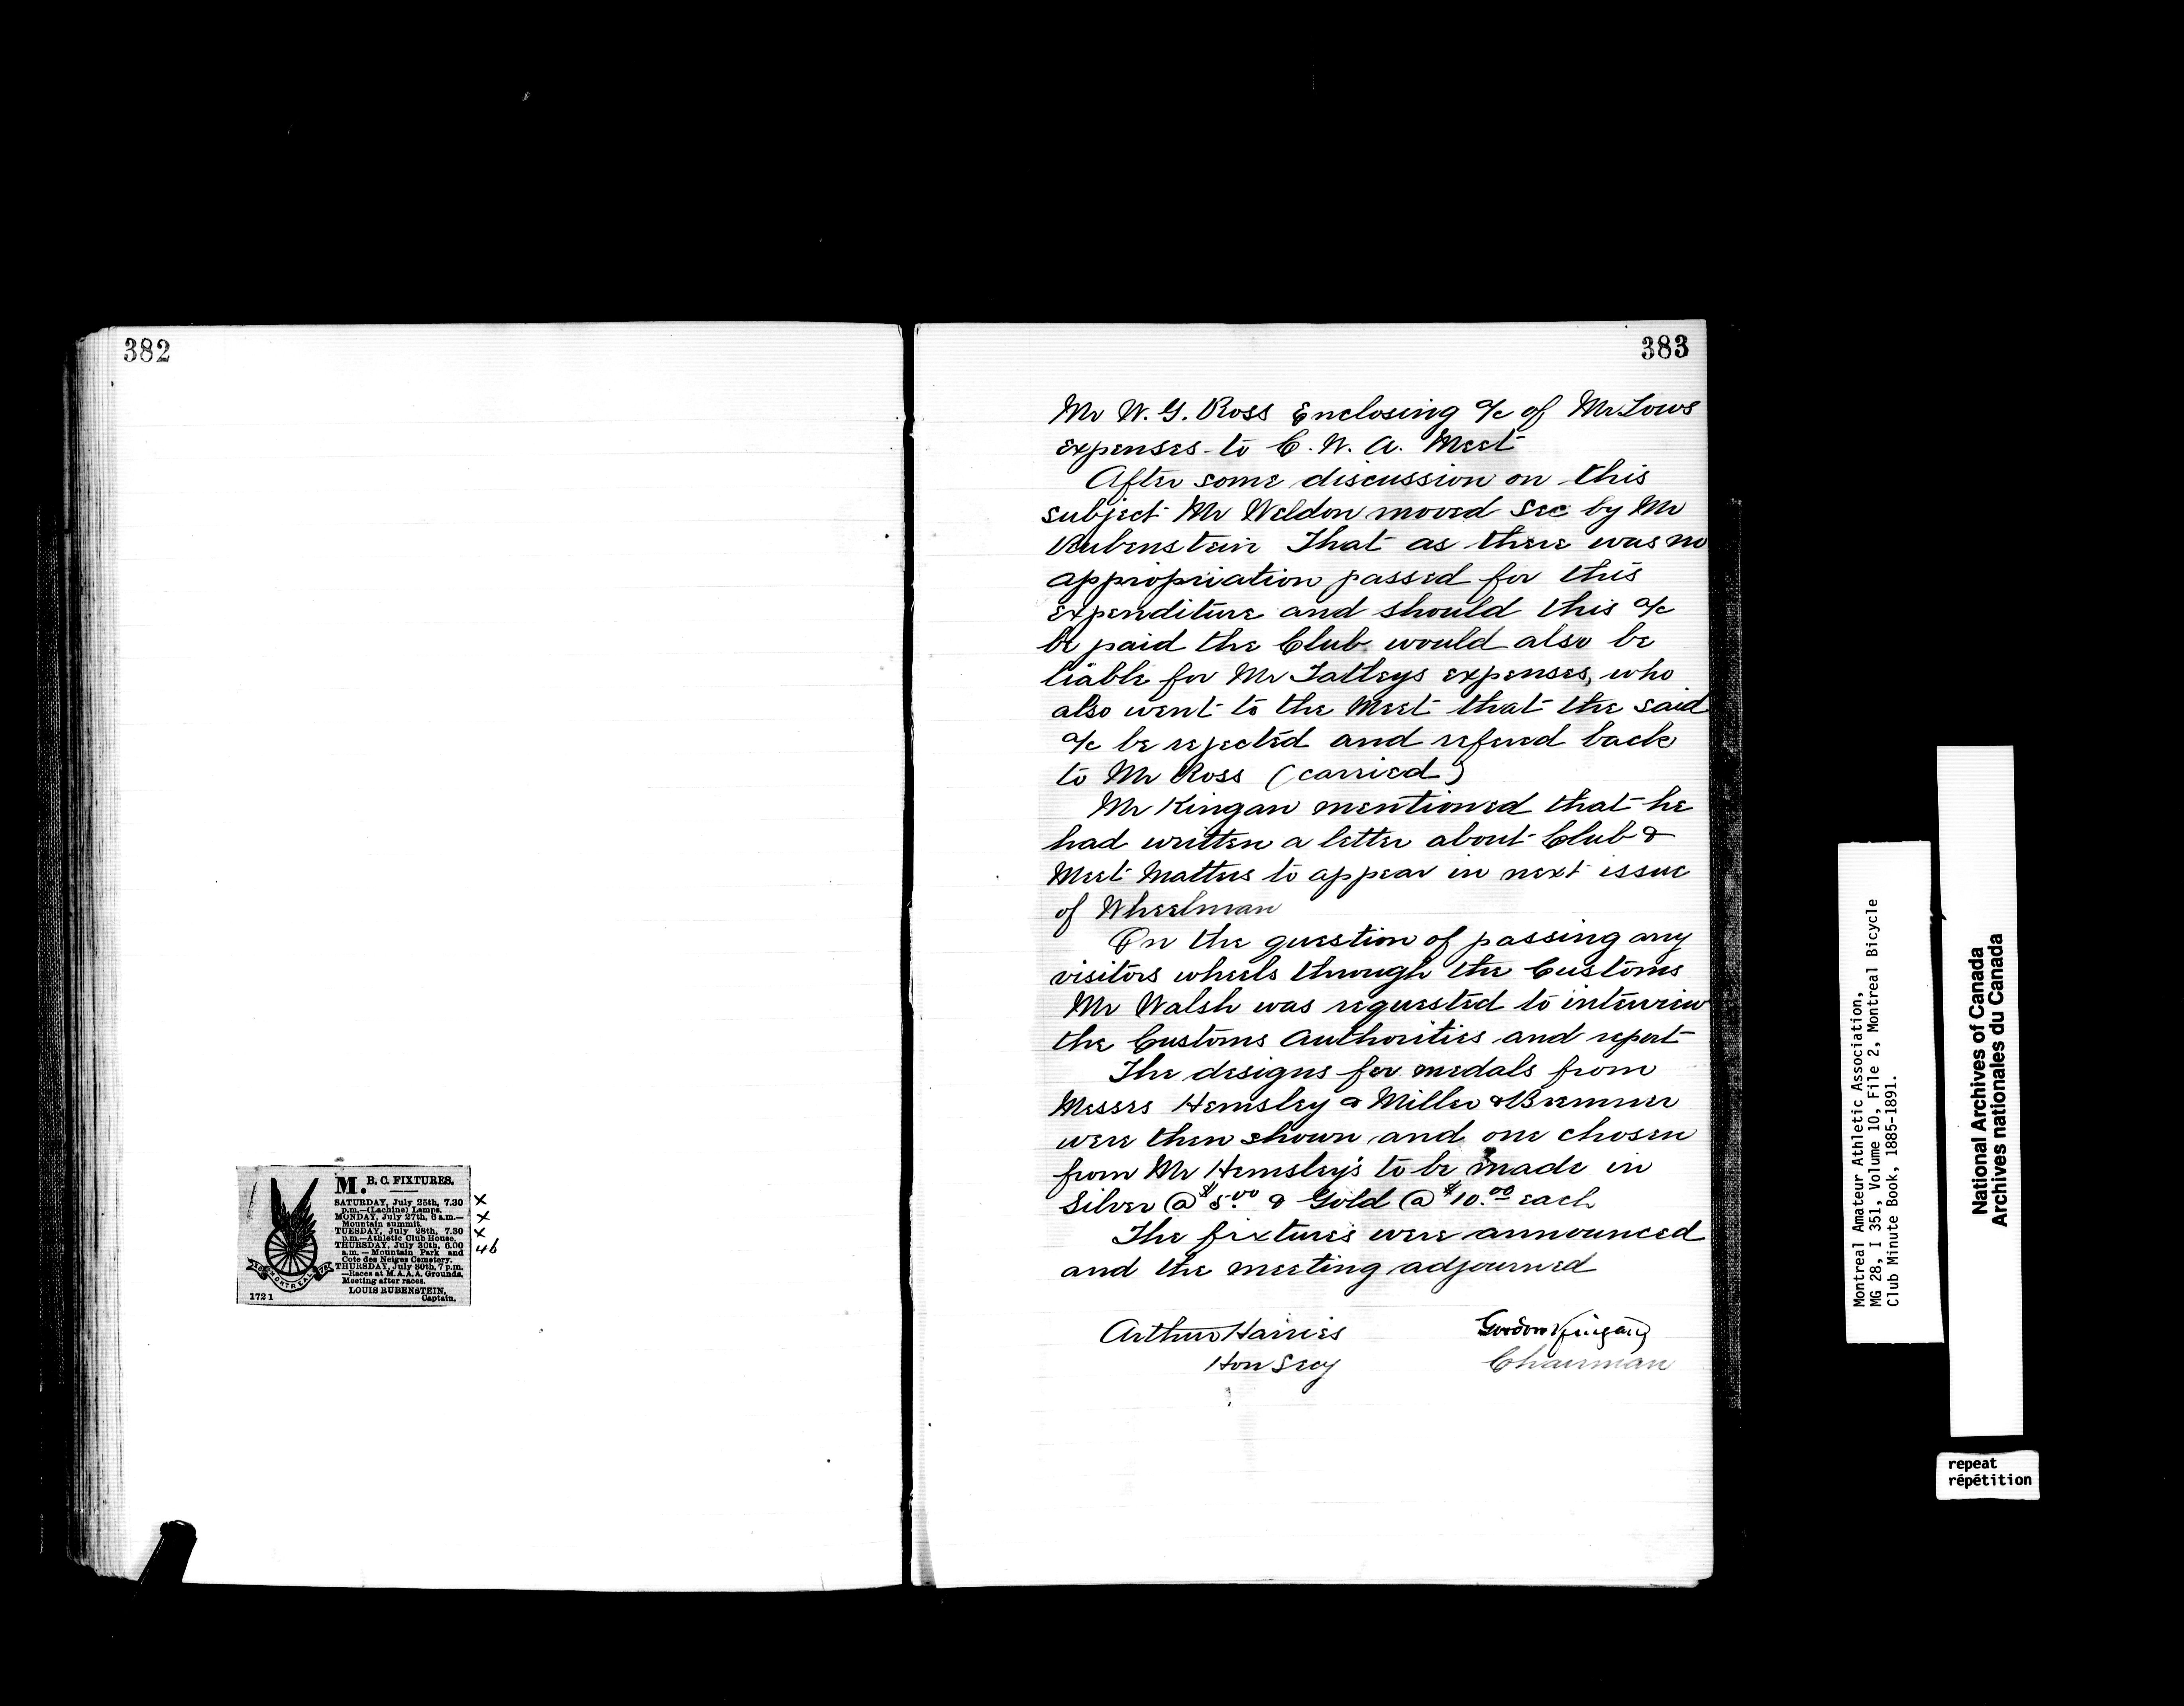 382
M. B. C. FIXTURES.
SATURDAY, July 25th, 7.30
p.m.—(Lachine) Lamps.
MONDAY, July 27th, 6 a.m.—
Mountain summit.
TUESDAY, July 28th, 7.30
p.m.—Athletic Club House.
THURSDAY, July 30th, 6.00
a.m. — Mountain Park and
Cote des Neiges Cemetery.
THURSDAY, July 30th, 7 p.m.
—Races at M.A.A.A. Grounds.
Meeting after races.
LOUIS RUBENSTEIN,
Captain.
MONTREAL
1721
x
x
x
46
383
Mr W. G. Ross Enclosing a/c of Mr Lows
expenses to C. W. A. Meet
After some discussion on this
subject Mr Weldon moved Sec by Mr
Rubenstein That as there was no
appropriation passed for this
expenditure and should this a/c
be paid the Club would also be
liable for Mr Tatleys expenses, who
also went to the Meet that the said
a/c be rejected and refered back
to Mr Ross (carried)
Mr Kingan mentioned that he
had written a letter about Club &
Meet Matters to appear in next issue
of Wheelman
On the question of passing any
visitors wheels through the Customs
Mr Walsh was requested to interview
the Customs Authorities and report
The designs for medals from
Messrs Hemsley & Miller & Bremner
were then shown and one chosen
from Mr Hemsley's to be made in
Silver @ $5.00 & Gold @ $10.00 each
The fixtures were announced
and the meeting adjourned
Arthur Harries
Hon Secy
Gordon Kingan
Chairman
Montreal Amateur Athletic Association,
MG 28, I 351, Volume 10, File 2, Montreal Bicycle
Club Minute Book, 1885-1891.
National Archives of Canada
Archives nationales du Canada
repeat
répétition